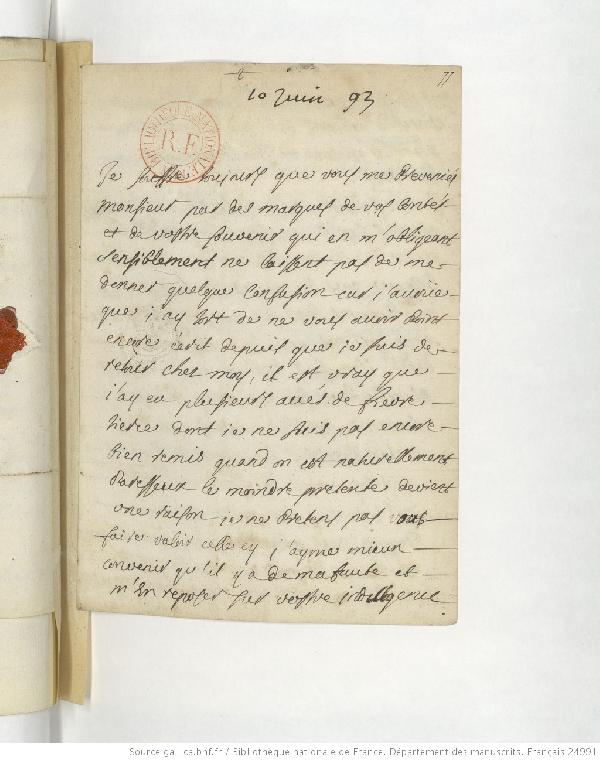 77
10 Juin 93
BIBLIOTHEQUE NATIONALE
R.F.
Je souffre tousjours que vous me preveniés
monsieur par des marques de vos bontés
et de vostre souvenir qui en m'obligeant
sensiblement ne laissent pas de me
donner quelque confusion car j'avoüe
que j'ay tort de ne vous avoir point
encore écrit depuis que je suis de
retour chez moy, il est vray que
j'ay eu plusieurs accés de fievre
tierce dont je ne suis pas encore
bien remis quand on est naturellement
paresseux le moindre pretexte devient
une raison je ne pretens pas vous
faire valoir celle cy j'ayme mieux
convenir qu'il y a de ma faute et
m'en reposer sur vostre indulgence
Source gallica.bnf.fr / Bibliothèque nationale de France. Département des manuscrits. Français 24991